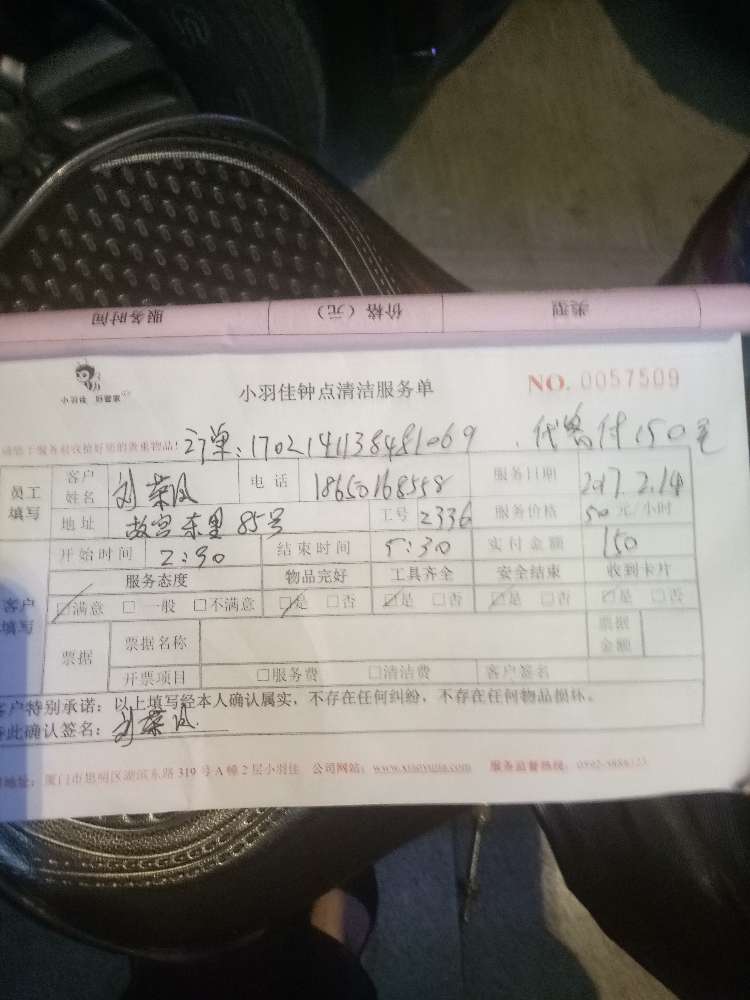 服务时间 价格（元） 类型
小羽佳 好管家
小羽佳钟点清洁服务单 NO. 0057509
订单:1702141138481069 . 代客付150元
员工填写 客户姓名 刘荣凤 电话 18650168558 服务日期 2017.2.14
地址 故宫东里85号 工号 2336 服务价格 50元/小时
开始时间 2:30 结束时间 5:30 实付金额 150
服务态度 物品完好 工具齐全 安全结束 收到卡片
客户填写 ☑满意 □一般 □不满意 ☑是 □否 ☑是 □否 ☑是 □否 ☑是 □否
票据 票据名称 票据金额
开票项目 □服务费 □清洁费 客户签名
客户特别承诺：以上填写经本人确认属实，不存在任何纠纷，不存在任何物品损坏。
此确认签名：刘荣凤
地址：厦门市思明区湖滨东路319号A幢2层小羽佳 公司网站：www.xiaoyujia.com 服务监督热线：